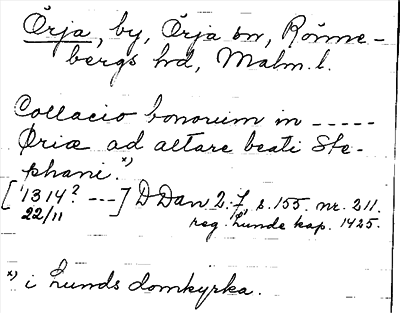 Örja, by, Örja sn, Rönne-
bergs hd, Malm. l.
Collacio bonorum in -----
Øriæ ad altare beati Ste-
phani.*)
[1314? ---] DDan 2:7, s. 155. nr. 211.
22/11 reg. Lunde kap. 1425.
*) i Lunds domkyrka.